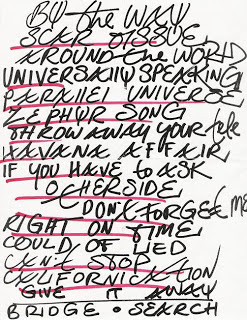 BY the WAY
SCAR TISSUE
AROUND the WORLD
UNIVERSALLY SPEAKING
PARALLEL UNIVERSE
ZEPHYR SONG
THROW AWAY YOUR tele
HAVANA AFFAIR
IF YOU HAVE to ASK
OTHERSIDE
DON'T FORGET ME
RIGHT ON TIME
COULD OF LIED
CAN'T STOP
CALIFORNICATION
GIVE IT AWAY
BRIDGE • SEARCH